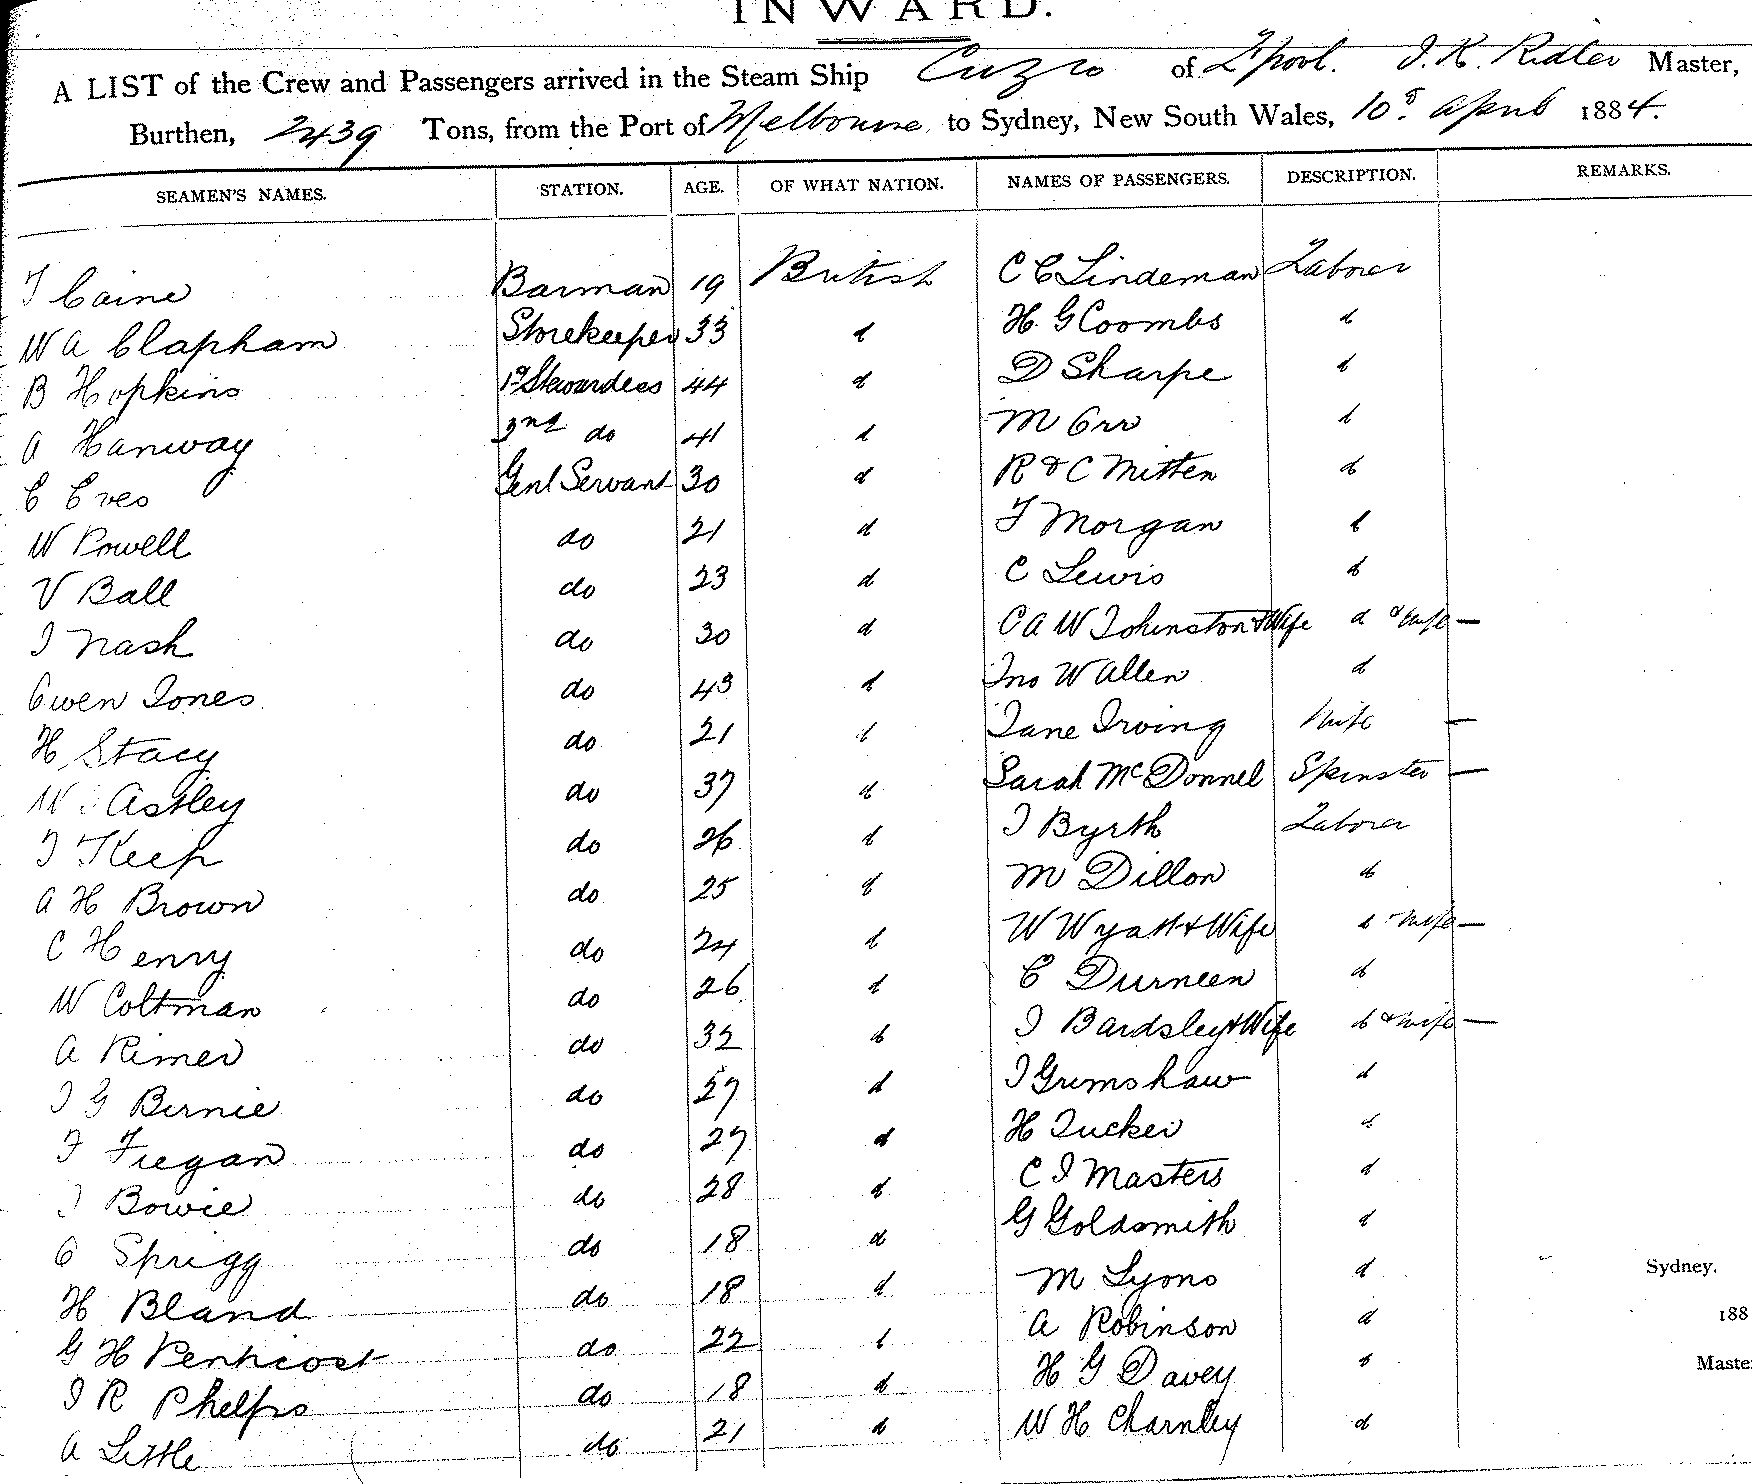 INWARD.
A LIST of the Crew and Passengers arrived in the Steam Ship Cuzco of L'pool. J. K. Ridler Master,
Burthen, 2439 Tons, from the Port of Melbourne to Sydney, New South Wales, 10th April 1884.
SEAMEN'S NAMES. STATION. AGE. OF WHAT NATION. NAMES OF PASSENGERS. DESCRIPTION. REMARKS.
T Caine Barman 19 British C C Lindeman Laborer
W A Clapham Storekeeper 33 d H. G Coombs d
B Hopkins 1st Stewardess 44 d D Sharpe d
A Hanway 2nd do 41 d M Orr d
C Eves Genl Servant 30 d R & C Mitten d
W Powell do 21 d T Morgan d
V Ball do 23 d C Lewis d
J Nash do 30 d C A W Johnston & Wife d & wife —
Owen Jones do 43 d Jno W Allen d
H Stacy do 21 d Jane Irving Wife —
W Astley do 37 d Sarah McDonnel Spinster —
J Keep do 26 d J Byrth Laborer
A H Brown do 25 d M Dillon d
C Henry do 24 d W Wyatt & Wife d wife —
W Coltman do 26 d C Durneen d
A Rimer do 32 d J Bardsley & Wife d & wife —
J G Bernie do 27 d J Grimshaw d
F Fregan do 27 d H Tucker d
J Bowie do 28 d C J Masters d
O Sprigg do 18 d G Goldsmith d
H Bland do 18 d M Lyons d Sydney.
G H Penticost do 22 d A Robinson d 188
J R Phelps do 18 d H G Davey d Master
A Little do 21 d W H Charnley d